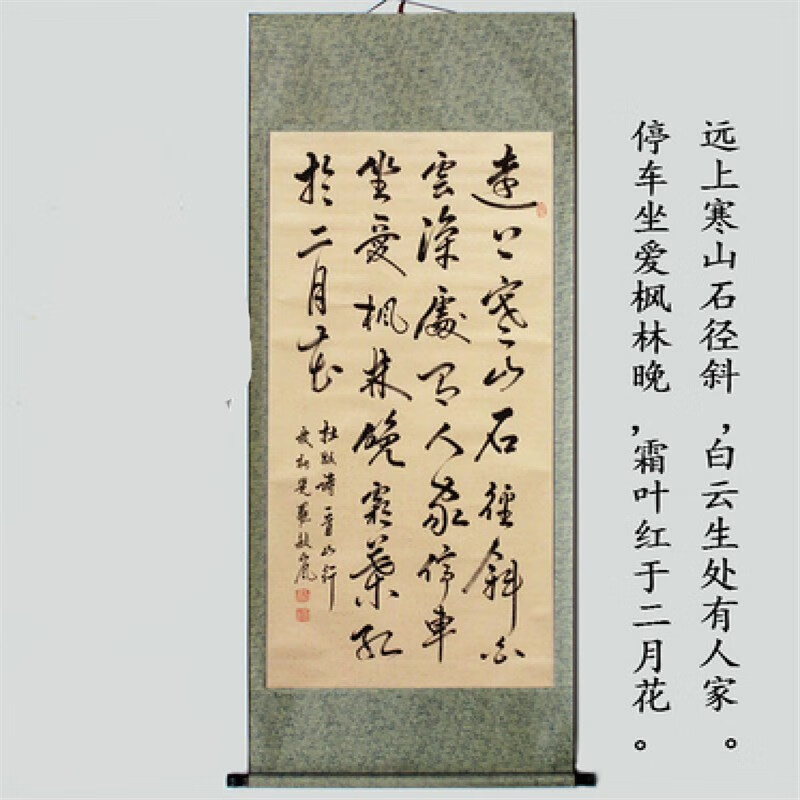 远上寒山石径斜,白云生处有人家。
停车坐爱枫林晚,霜叶红于二月花。
遠上寒山石徑斜白
雲深處有人家停車
坐愛楓林晚霜葉紅
於二月花
杜牧詩一首山行